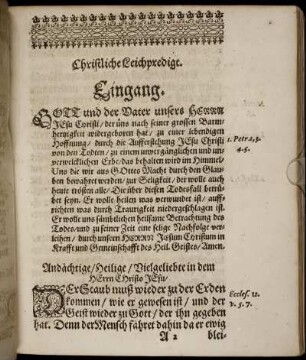 Christliche Leichpredigt.
Eingang.
GOTT und der Vater unsers HERRN
JEsu Christi, der uns nach seiner grossen Barm-
hertzigkeit widergeboren hat / zu einer lebendigen
Hoffnung / durch die Aufferstehung JEsu Christi
von den Todten / zu einem unvergänglichen und un-
verwelcklichen Erbe / das behalten wird im Himmel /
1. Petr. 1, 3.
4. 5.
Uns die wir aus GOttes Macht durch den Glau-
ben bewahret werden / zur Seligkeit, der wolle auch
heute trösten alle / Die über diesen Todesfall betrü-
bet seyn. Er wolle heilen was verwundet ist / auff-
richten was durch Traurigkeit niedergeschlagen ist.
Er wolle uns sämbtlichen heilsame Betrachtung des
Todes / und zu seiner Zeit eine selige Nachfolge ver-
leihen / durch unsern HERRN Jesum Christum in
Krafft und Gemeinschafft des Heil. Geistes / Amen.
Andächtige / Heilige / Vielgeliebte in dem
HErrn Christo JEsu.
DEr Staub muß wieder zu der Erden
kommen / wie er gewesen ist / und der
Geist wieder zu Gott / der ihn gegeben
hat. Denn der Mensch fähret dahin da er ewig
Eccles. 12.
v. 5. 7.
A 2
blei-